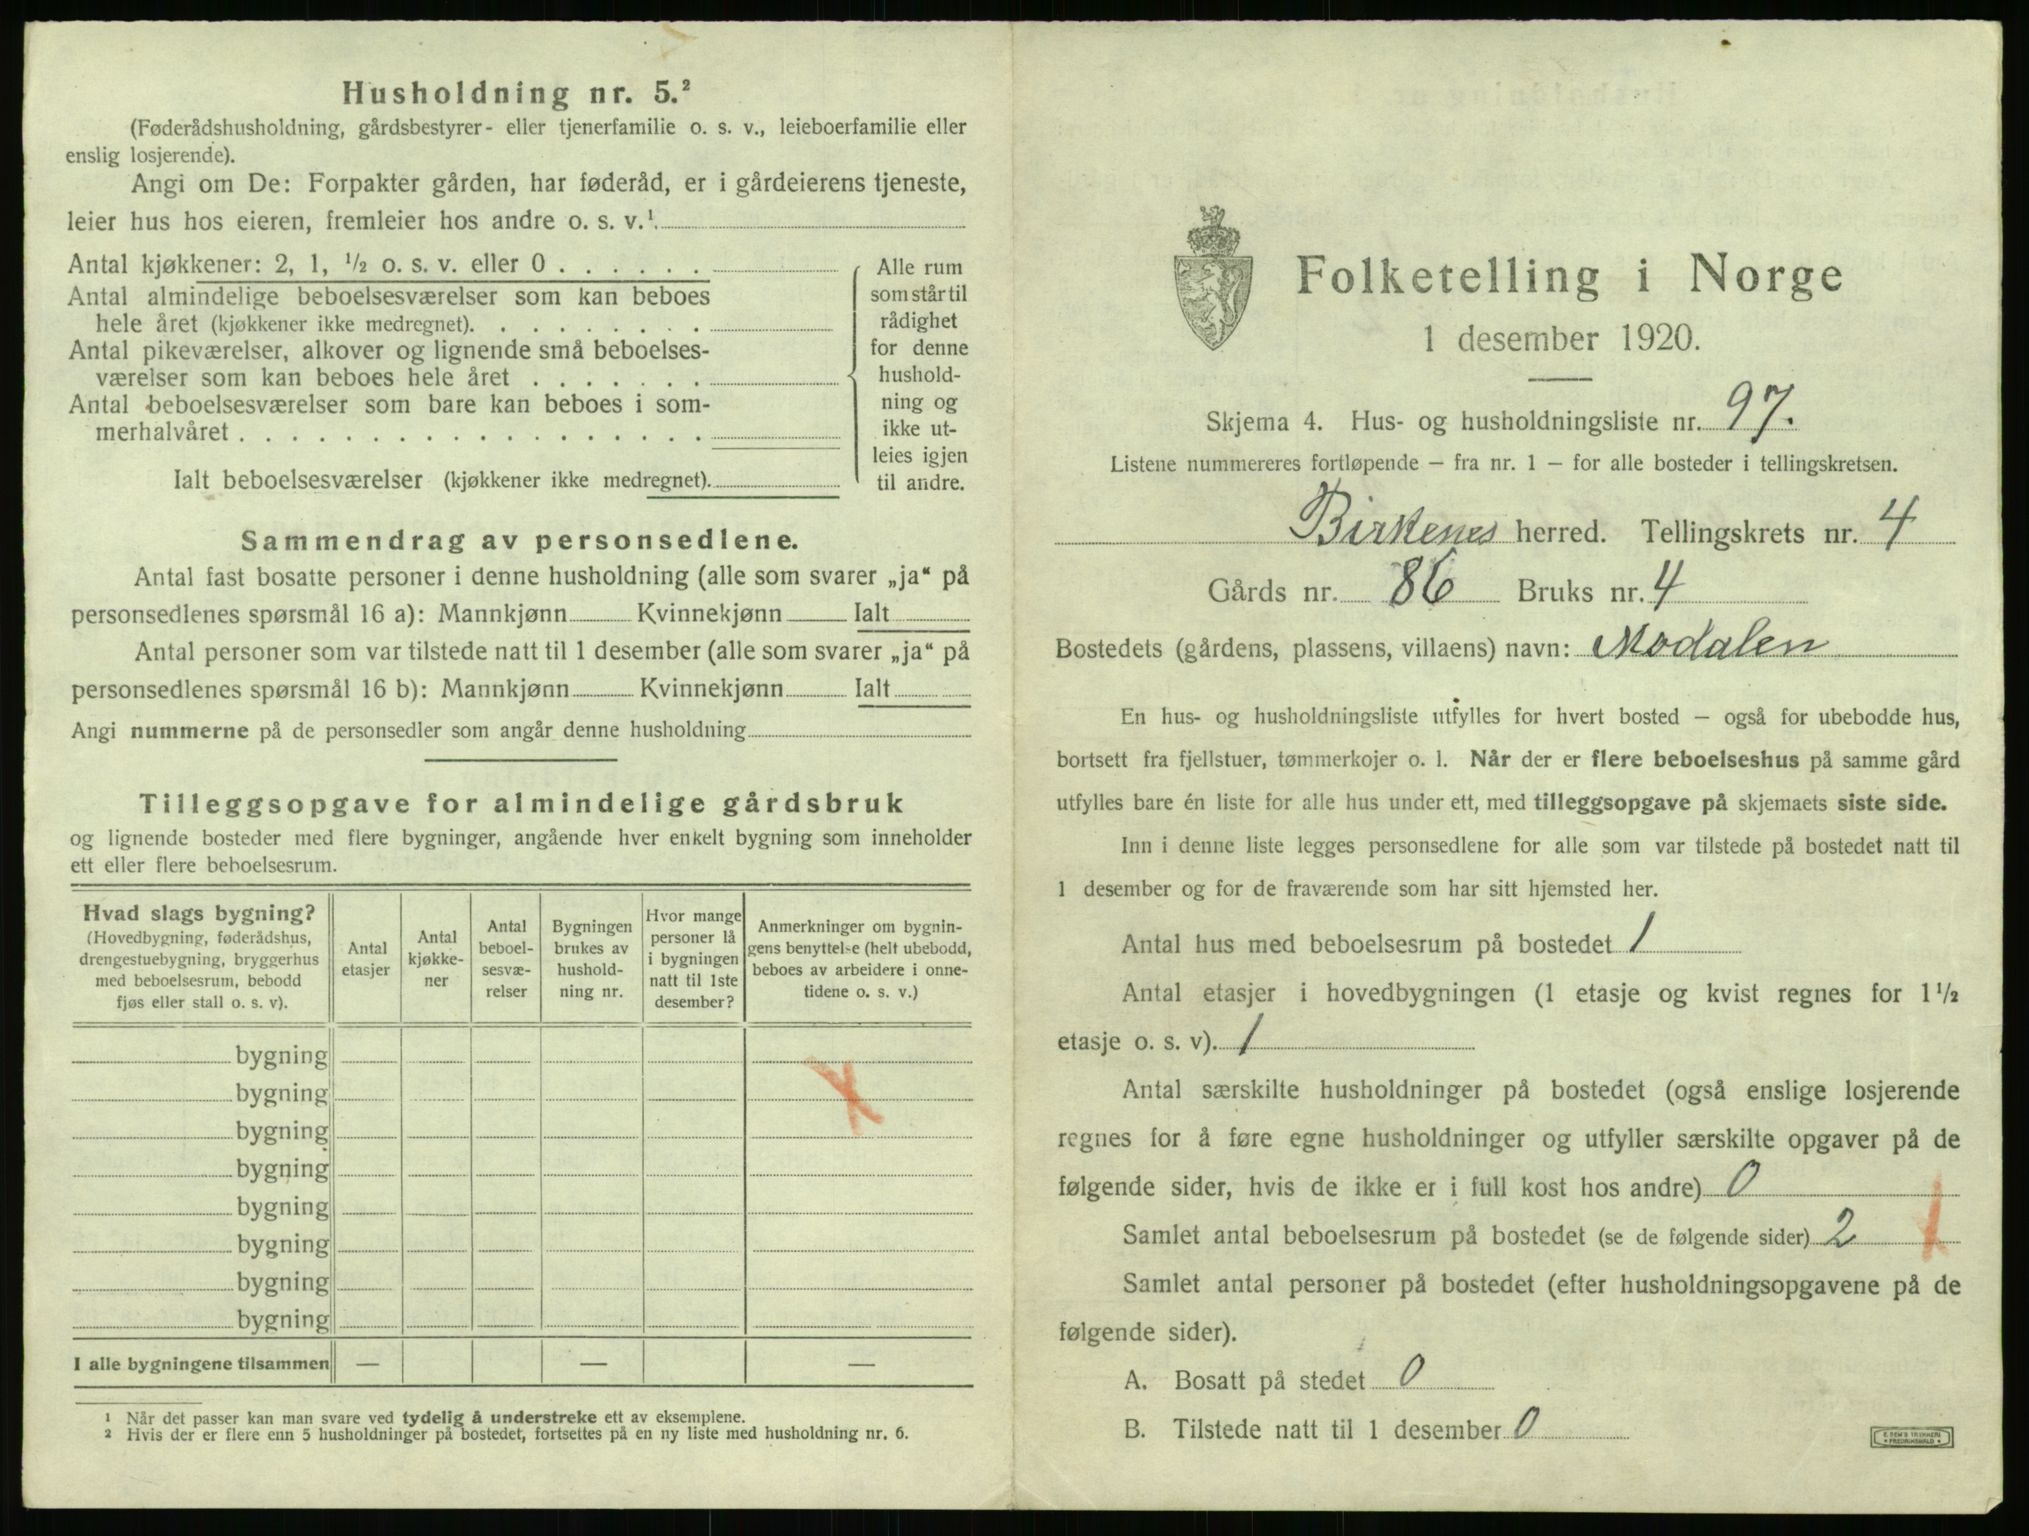 Husholdning nr. 5.²
(Føderådshusholdning, gårdsbestyrer- eller tjenerfamilie o. s. v., leieboerfamilie eller
enslig losjerende).
Angi om De: Forpakter gården, har føderåd, er i gårdeierens tjeneste,
leier hus hos eieren, fremleier hos andre o. s. v.¹
Antal kjøkkener: 2, 1, ½ o. s. v. eller 0 . . . . . .
Antal almindelige beboelsesværelser som kan beboes
hele året (kjøkkener ikke medregnet). . . . . . . . .
Antal pikeværelser, alkover og lignende små beboelses-
værelser som kan beboes hele året . . . . . . .
Antal beboelsesværelser som bare kan beboes i som-
merhalvåret . . . . . . . . . . . . . . . . . .
Ialt beboelsesværelser (kjøkkener ikke medregnet).
Alle rum
som står til
rådighet
for denne
hushold-
ning og
ikke ut-
leies igjen
til andre.
Sammendrag av personsedlene.
Antal fast bosatte personer i denne husholdning (alle som svarer „ja“ på
personsedlenes spørsmål 16 a): Mannkjønn Kvinnekjønn Ialt
Antal personer som var tilstede natt til 1 desember (alle som svarer „ja“ på
personsedlenes spørsmål 16 b): Mannkjønn Kvinnekjønn Ialt
Angi nummerne på de personsedler som angår denne husholdning
Tilleggsopgave for almindelige gårdsbruk
og lignende bosteder med flere bygninger, angående hver enkelt bygning som inneholder
ett eller flere beboelsesrum.
Hvad slags bygning?
(Hovedbygning, føderådshus,
drengestuebygning, bryggerhus
med beboelsesrum, bebodd
fjøs eller stall o. s. v).
Antal
etasjer
Antal
kjøkke-
ner
Antal
beboel-
sesvæ-
relser
Bygningen
brukes av
hushold-
ning nr.
Hvor mange
personer lå
i bygningen
natt til 1ste
desember?
Anmerkninger om bygnin-
gens benyttelse (helt ubebodd,
beboes av arbeidere i onne-
tidene o. s. v.)
bygning
bygning
bygning
bygning
bygning
bygning
bygning
bygning
I alle bygningene tilsammen — — —
¹ Når det passer kan man svare ved tydelig å understreke ett av eksemplene.
² Hvis der er flere enn 5 husholdninger på bostedet, fortsettes på en ny liste med husholdning nr. 6.
Folketelling i Norge
1 desember 1920.
Skjema 4. Hus- og husholdningsliste nr. 97.
Listene nummereres fortløpende – fra nr. 1 – for alle bosteder i tellingskretsen.
Birkenes herred. Tellingskrets nr. 4
Gårds nr. 86 Bruks nr. 4
Bostedets (gårdens, plassens, villaens) navn: Modalen
En hus- og husholdningsliste utfylles for hvert bosted – også for ubebodde hus,
bortsett fra fjellstuer, tømmerkojer o. l. Når der er flere beboelseshus på samme gård
utfylles bare én liste for alle hus under ett, med tilleggsopgave på skjemaets siste side.
Inn i denne liste legges personsedlene for alle som var tilstede på bostedet natt til
1 desember og for de fraværende som har sitt hjemsted her.
Antal hus med beboelsesrum på bostedet 1
Antal etasjer i hovedbygningen (1 etasje og kvist regnes for 1½
etasje o. s. v). 1
Antal særskilte husholdninger på bostedet (også enslige losjerende
regnes for å føre egne husholdninger og utfyller særskilte opgaver på de
følgende sider, hvis de ikke er i full kost hos andre) 0
Samlet antal beboelsesrum på bostedet (se de følgende sider) 2
Samlet antal personer på bostedet (efter husholdningsopgavene på de
følgende sider).
A. Bosatt på stedet 0
B. Tilstede natt til 1 desember 0